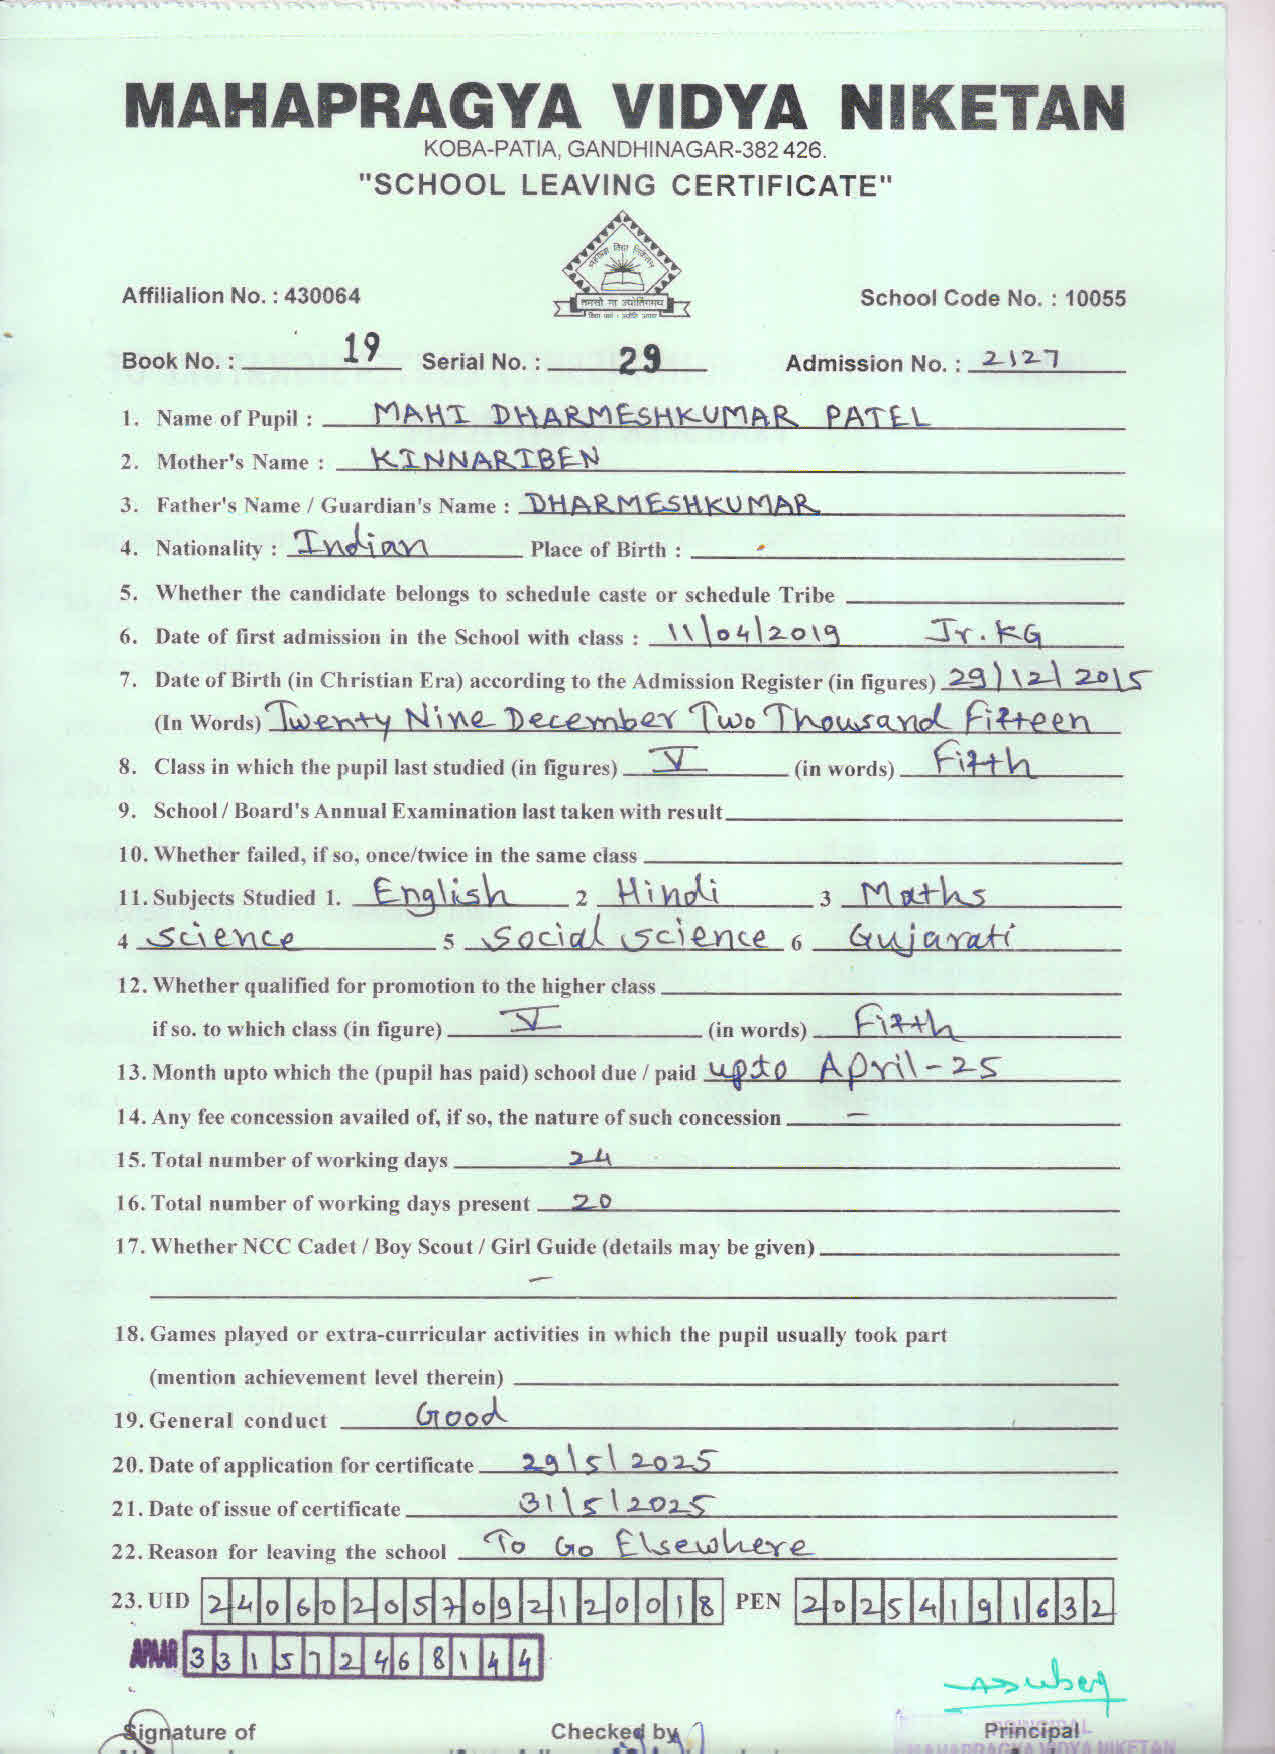 MAHAPRAGYA VIDYA NIKETAN
KOBA-PATIA, GANDHINAGAR-382 426.
"SCHOOL LEAVING CERTIFICATE"
तमसो मा ज्योतिर्गमय
Affilialion No. : 430064 School Code No. : 10055
Book No. : 19 Serial No. : 29 Admission No. : 2127
1. Name of Pupil : MAHI DHARMESHKUMAR PATEL
2. Mother's Name : KINNARIBEN
3. Father's Name / Guardian's Name : DHARMESHKUMAR
4. Nationality : Indian Place of Birth :
5. Whether the candidate belongs to schedule caste or schedule Tribe
6. Date of first admission in the School with class : 11/04/2019 Jr. KG
7. Date of Birth (in Christian Era) according to the Admission Register (in figures) 29/12/2015
(In Words) Twenty Nine December Two Thousand Fifteen
8. Class in which the pupil last studied (in figures) V (in words) Fifth
9. School / Board's Annual Examination last taken with result
10. Whether failed, if so, once/twice in the same class
11. Subjects Studied 1. English 2 Hindi 3 Maths
4 Science 5 Social Science 6 Gujarati
12. Whether qualified for promotion to the higher class
if so. to which class (in figure) V (in words) Fifth
13. Month upto which the (pupil has paid) school due / paid upto April-25
14. Any fee concession availed of, if so, the nature of such concession —
15. Total number of working days 24
16. Total number of working days present 20
17. Whether NCC Cadet / Boy Scout / Girl Guide (details may be given)
—
18. Games played or extra-curricular activities in which the pupil usually took part
(mention achievement level therein)
19. General conduct Good
20. Date of application for certificate 29/5/2025
21. Date of issue of certificate 31/5/2025
22. Reason for leaving the school To Go Elsewhere
23. UID 240602057092120018 PEN 20254191632
APAAR 331572468144
Signature of Checked by Principal
PRINCIPAL
MAHAPRAGYA VIDYA NIKETAN